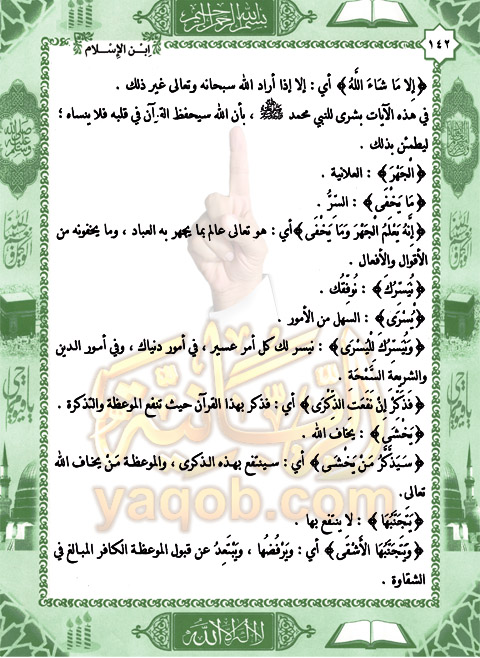 بسم الله الرحمن الرحيم
١٤٢
ابْن الإِسْلام
﴿إِلا مَا شَاءَ اللَّهُ﴾ أي : إلا إذا أراد الله سبحانه وتعالى غير ذلك .
في هذه الآيات بشرى للنبي محمد ﷺ ، بأن الله سيحفظ القرآن في قلبه فلا ينساه ؛
ليطمئن بذلك .
﴿الْجَهْرَ﴾ : العلانية .
﴿مَا يَخْفَى﴾ : السِّرُّ .
﴿إِنَّهُ يَعْلَمُ الْجَهْرَ وَمَا يَخْفَى﴾ أي : هو تعالى عالم بما يجهر به العباد ، وما يخفونه من
الأقوال والأفعال .
﴿نُيَسِّرُكَ﴾ : نُوَفِّقُك .
﴿يُسْرَى﴾ : السهل من الأمور .
﴿وَنُيَسِّرُكَ لِلْيُسْرَى﴾ : نيسر لك كل أمر عسير ، في أمور دنياك ، وفي أمور الدين
والشريعة السَّمْحَة .
﴿فَذَكِّرْ إِنْ نَفَعَتِ الذِّكْرَى﴾ أي : فذكر بهذا القرآن حيث تنفع الموعظة والتذكرة .
﴿يَخْشَى﴾ : يخاف الله .
﴿سَيَذَّكَّرُ مَنْ يَخْشَى﴾ أي : سينتفع بهذه الذكرى ، والموعظة مَنْ يخاف الله
تعالى.
﴿يَتَجَنَّبُهَا﴾ : لا ينتفع بها .
﴿وَيَتَجَنَّبُهَا الأَشْقَى﴾ أي : وَيَرْفُضُها ، وَيَبْتَعِدُ عن قبول الموعظة الكافر المبالغ في
الشقاوة .
yaqob.com
لا إله إلا الله